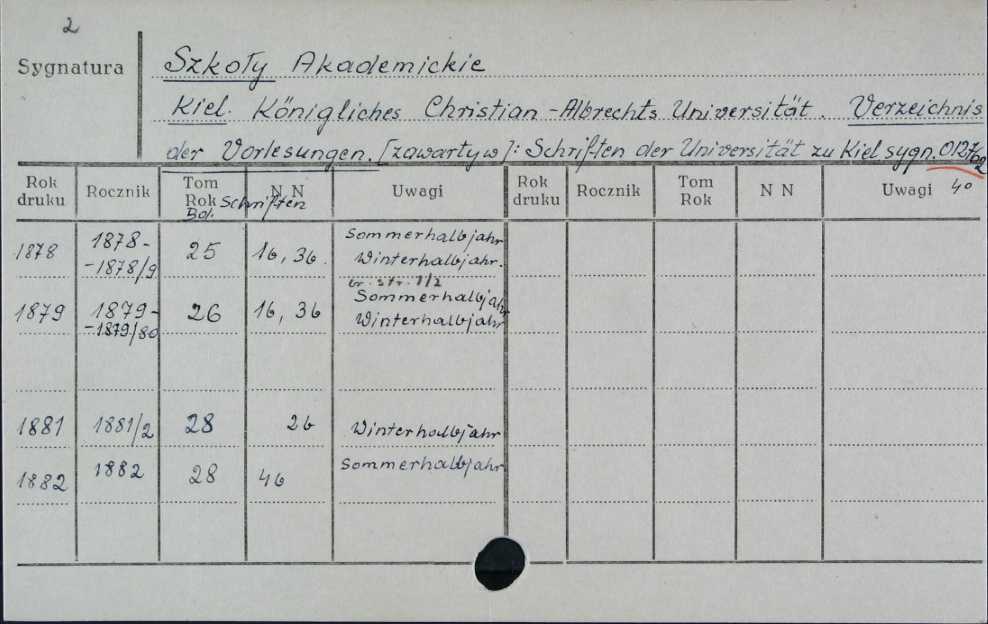 2
Sygnatura
Szkoły Akademickie
Kiel. Königliches Christian-Albrechts Universität. Verzeichnis
der Vorlesungen. [zawarty w]: Schriften der Universität zu Kiel sygn. 0127/02
4o
Rok druku Rocznik Tom Rok N N Uwagi Rok druku Rocznik Tom Rok N N Uwagi
Bd. Schriften
1878 1878- 25 16, 36. Sommerhalbjahr
-1878/9 Winterhalbjahr.
br. str. 1/2
1879 1879- 26 16, 36 Sommerhalbjahr
-1879/80 Winterhalbjahr
1881 1881/2 28 2b Winterhalbjahr
1882 1882 28 4b Sommerhalbjahr